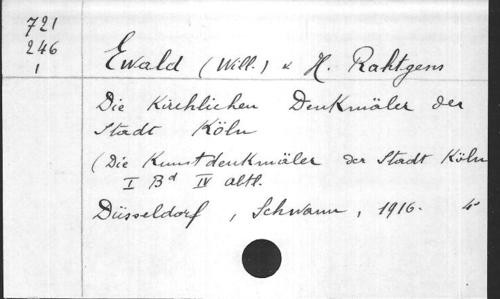 721
246
1
Ewald (Will.) & H. Rahtgens
Die Kirchlichen Denkmäler der
Stadt Köln
(Die Kunstdenkmäler der Stadt Köln
I Bd IV abtl.
Düsseldorf, Schwann, 1916. 4°